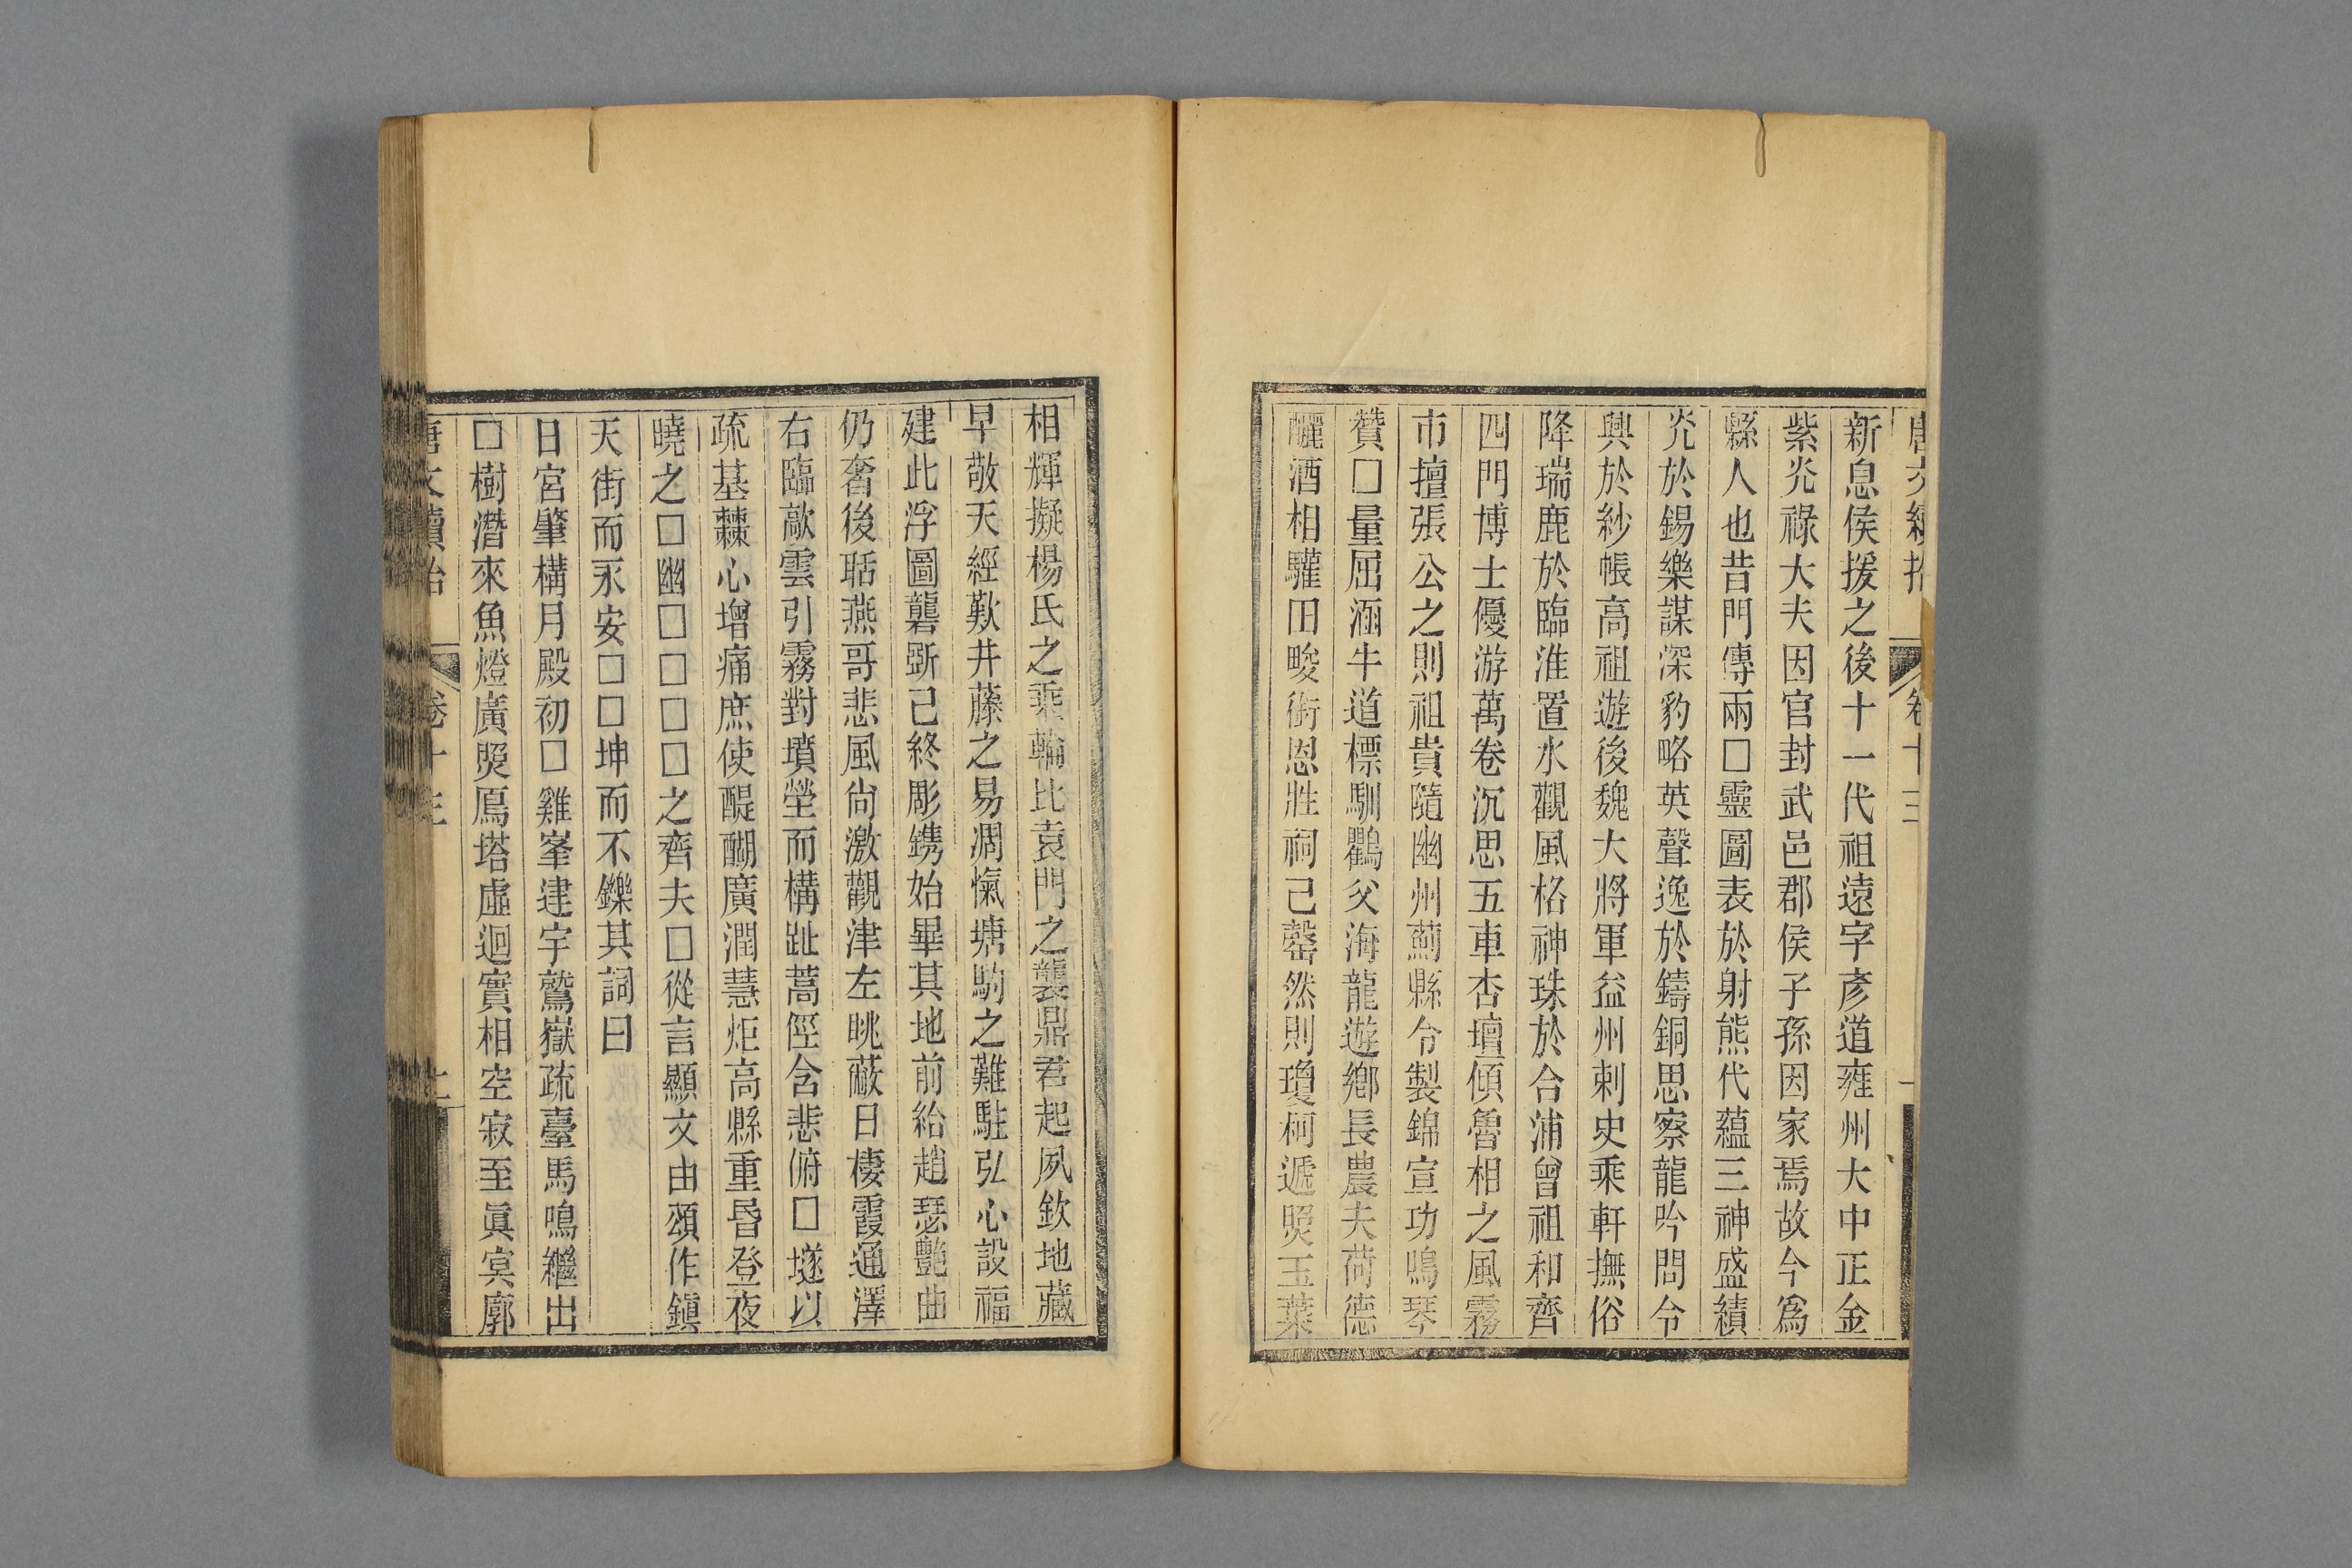 新息侯援之後十一代祖遠字彥道雍州大中正金
紫光祿大夫因官封武邑郡侯子孫因家焉故今爲
縣人也昔門傳兩□靈圖表於射熊代蘊三神盛績
光於錫樂謀深豹略英聲逸於鑄銅思察龍吟問令
興於紗帳高祖遊後魏大將軍益州刺史乘軒撫俗
降瑞鹿於臨淮置水觀風格神珠於合浦曾祖和齊
四門博士優游萬卷沉思五車杏壇傾魯相之風霧
市擅張公之則祖貴隨幽州薊縣令製錦宣功鳴琴
贊□量屈涵牛道標馴鸜父海龍遊鄉長農夫荷德
釃酒相驩田畯銜恩牲祠已罄然則瓊柯遞煚玉葉
相輝擬楊氏之乘輪比袁門之襲鼎君起夙欽地藏
早敬天經歎井藤之易凋愾塘駒之難駐弘心設福
建此浮圖礱斲已終彫鐫始畢其地前給趙瑟艷曲
仍奢後聒燕哥悲風尙激觀津左眺蔽日棲霞通澤
右臨歊雲引霧對墳塋而構趾蒿徑含悲俯□墜以
疏基棘心增痛庶使醍醐廣潤慧炬高縣重昏登夜
曉之□幽□□□□之齊夫□從言顯文由頌作鎭
天街而永安□□坤而不鑠其詞曰
日宮肇構月殿初□雞峯建宇鷲嶽疏臺馬鳴繼出
□樹潛來魚燈廣煚鴈塔虛迴實相空寂至眞冥廓
唐文續拾　卷十三